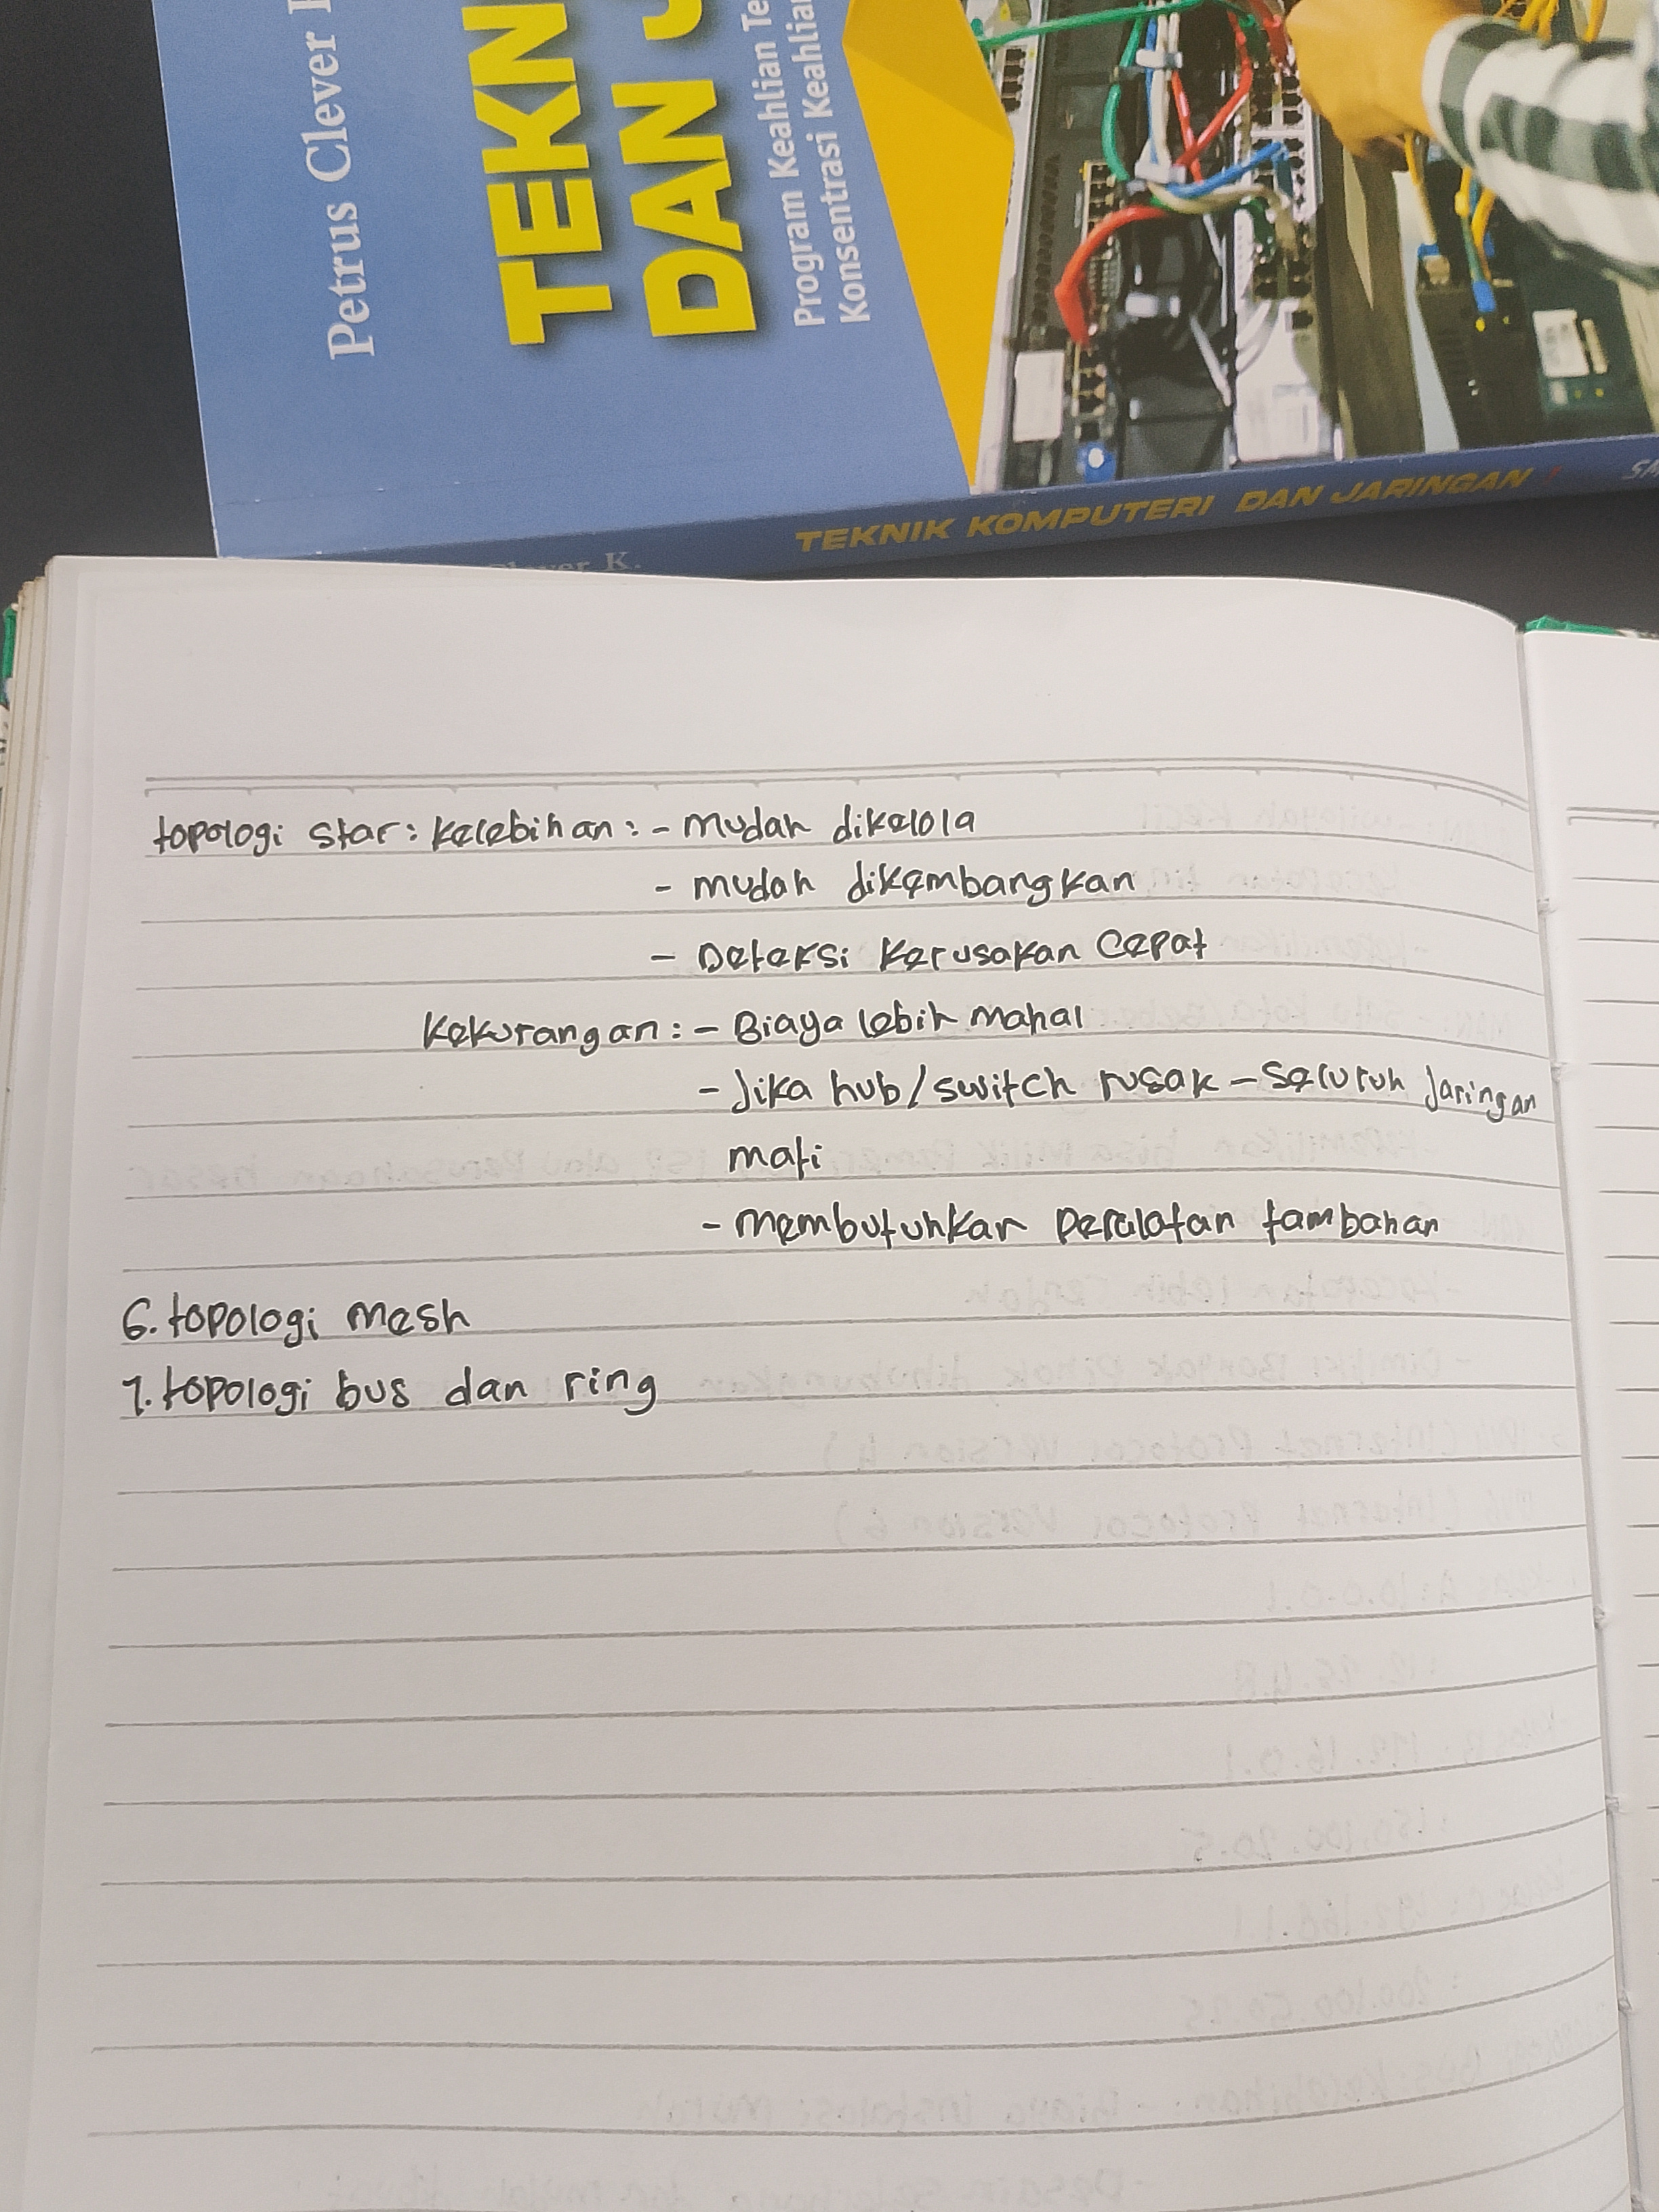 Petrus Clever
TEKN
DAN J
Program Keahlian Te
Konsentrasi Keahlian
TEKNIK KOMPUTERI DAN JARINGAN
K.
topologi star: kelebihan: - mudah dikelola
- mudah dikembangkan
- Deteksi kerusakan cepat
kekurangan: - Biaya lebih mahal
- Jika hub/switch rusak - seluruh jaringan
mati
- membutuhkan peralatan tambahan
6. topologi mesh
7. topologi bus dan ring